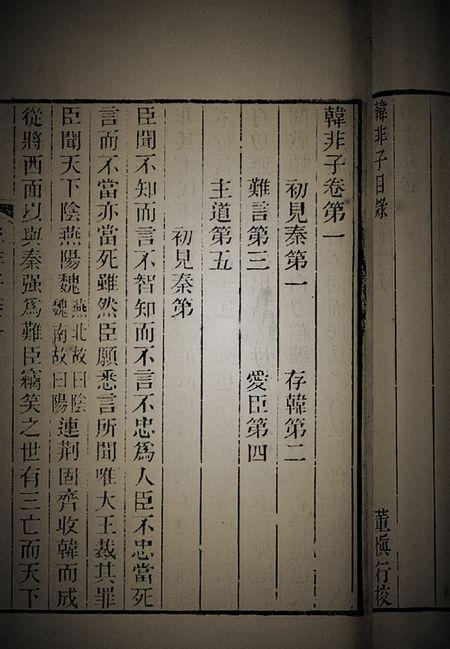 韓非子目錄　董慎行校
韓非子卷第一
初見秦第一　存韓第二
難言第三　愛臣第四
主道第五
初見秦第
臣聞不知而言不智知而不言不忠爲人臣不忠當死
言而不當亦當死雖然臣願悉言所聞唯大王裁其罪
臣聞天下陰燕陽魏燕北故曰陰魏南故曰陽連荆固齊收韓而成
從將西面以與秦强爲難臣竊笑之世有三亡而天下